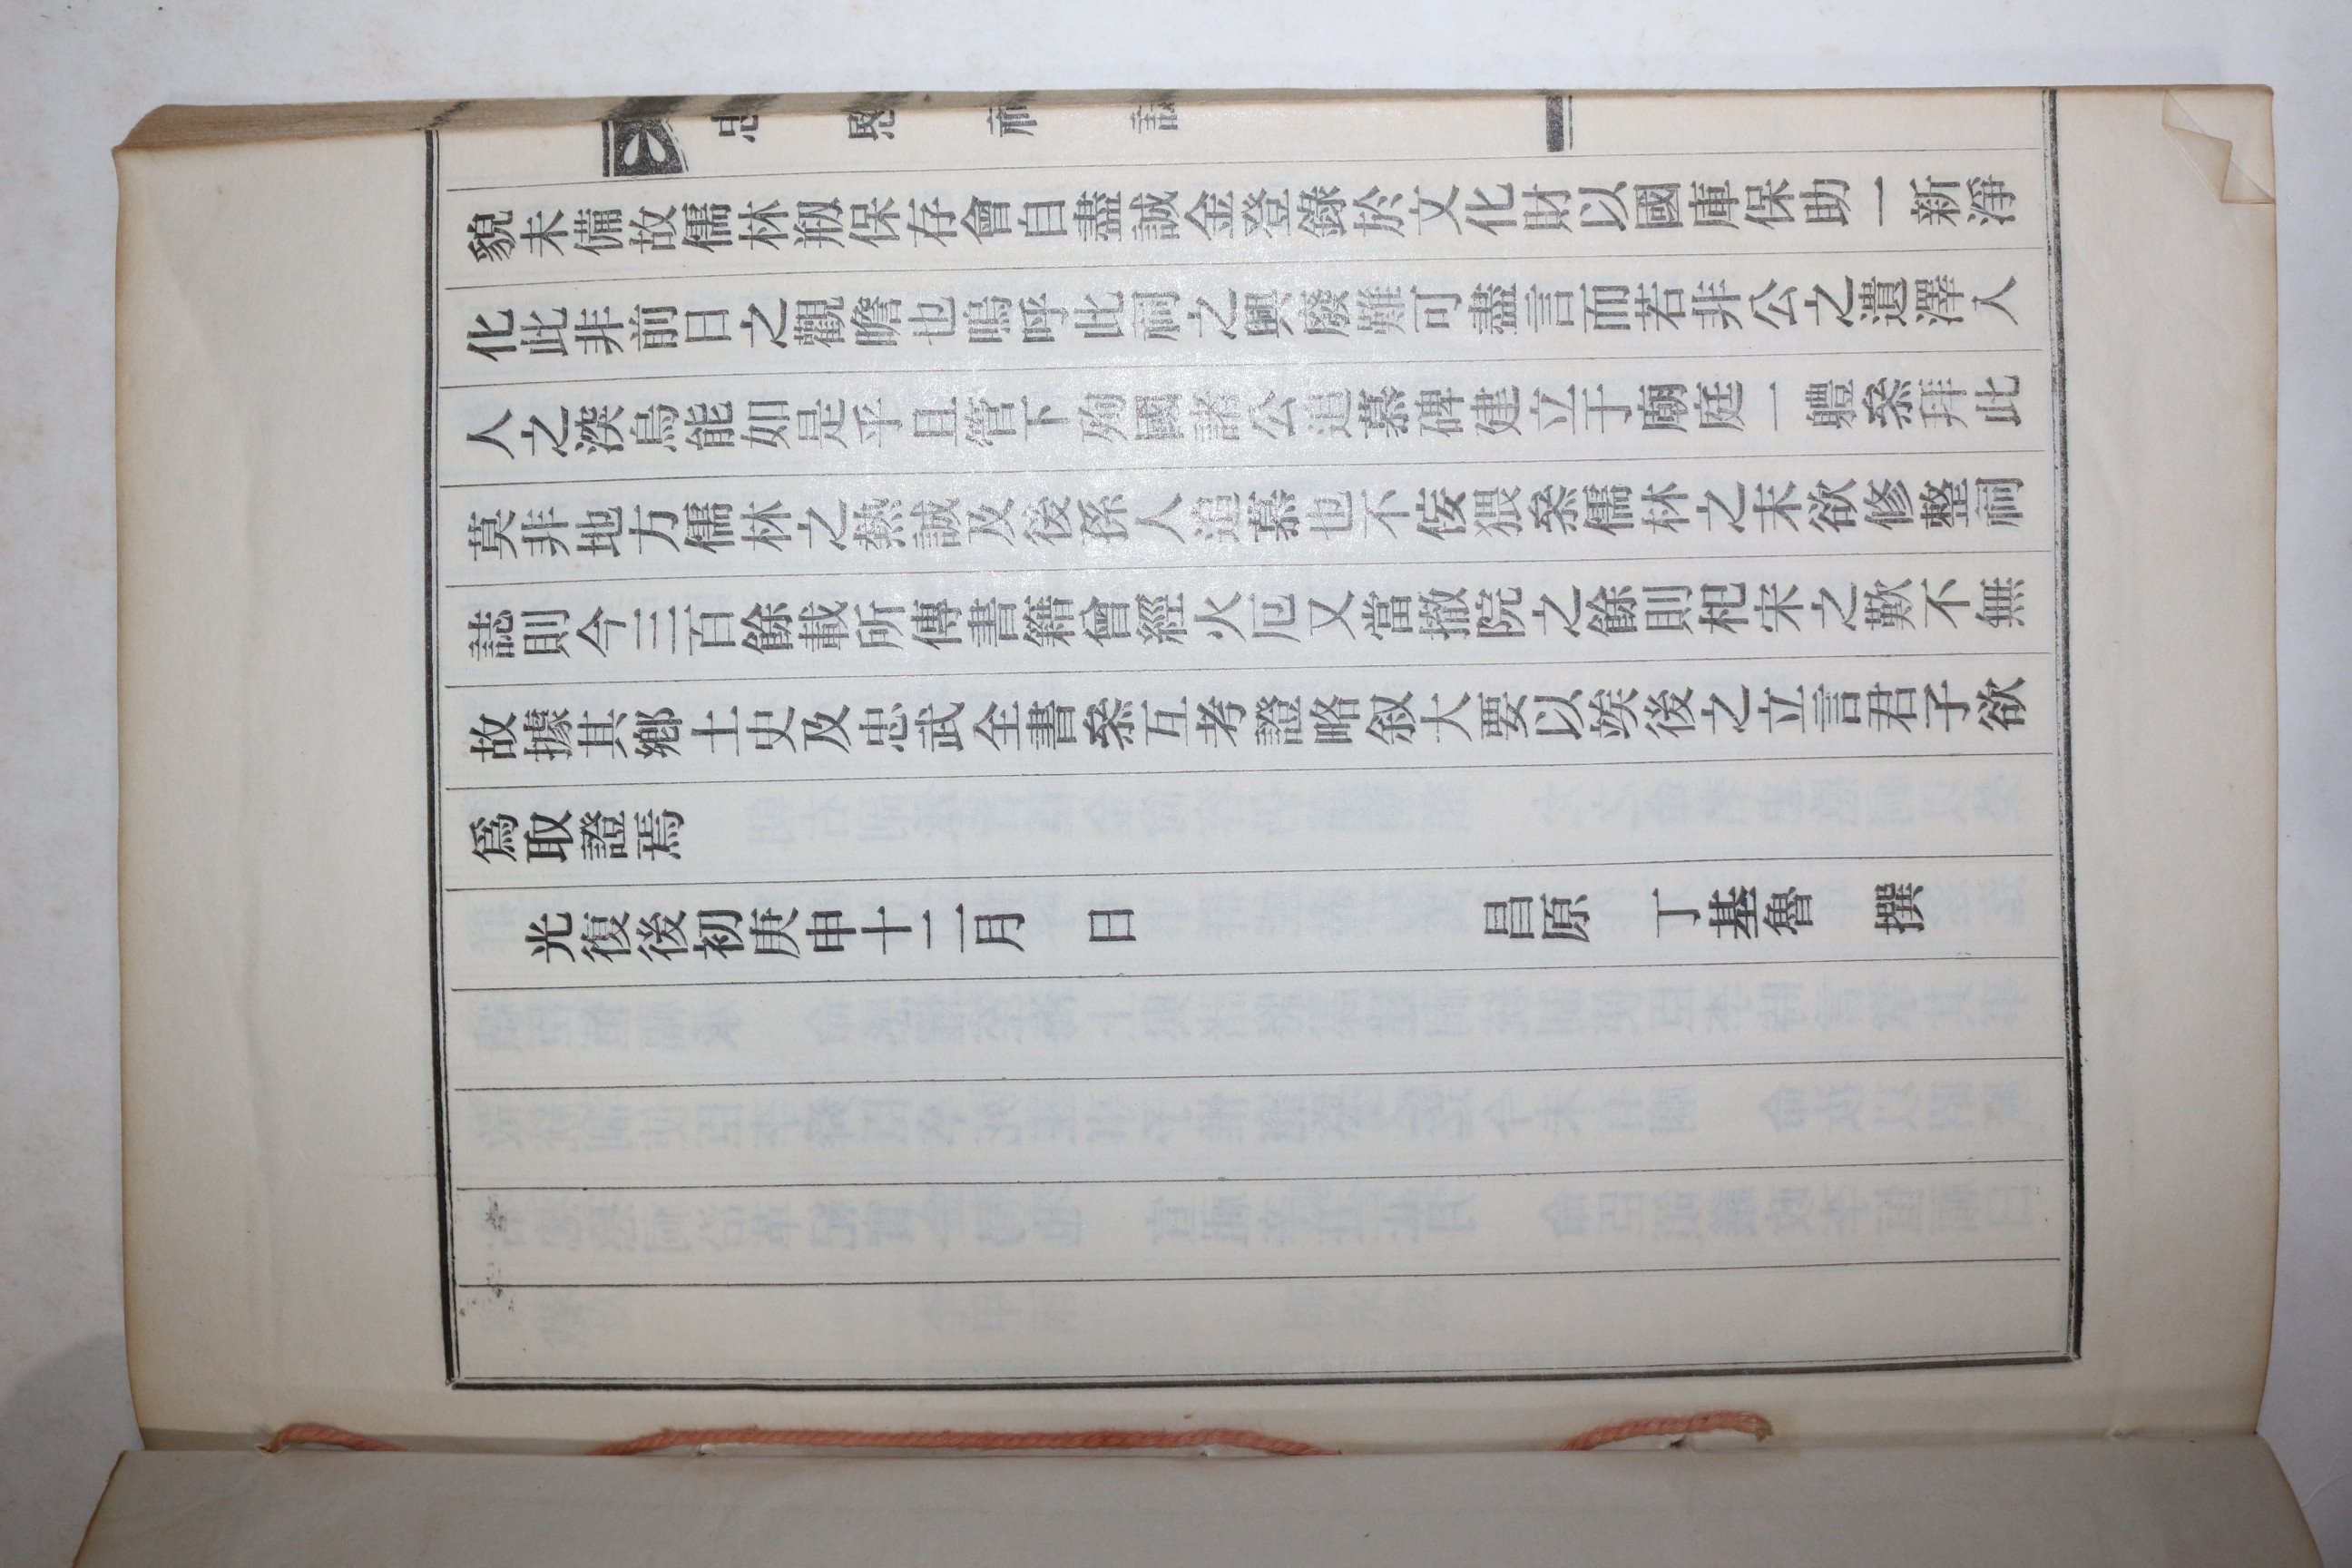 忠愍祠誌
貌未備故儒林刱保存會自盡誠金登錄於文化財以國庫保助一新淨
化此非前日之觀瞻也嗚呼此祠之興廢難可盡言而若非公之遺澤入
人之湥烏能如是乎且管下殉國諸公追慕碑建立于廟庭一軆叅拜此
莫非地方儒林之熱誠及後孫人追慕也不侫猥叅儒林之末欲修整祠
誌則今三百餘載所傳書籍曾經火厄又當撤院之餘則杞宋之歎不無
故據其鄉土史及忠武全書叅互考證略叙大要以竢後之立言君子欲
爲取證焉
光復後初庚申十二月 日 昌原 丁基魯 撰